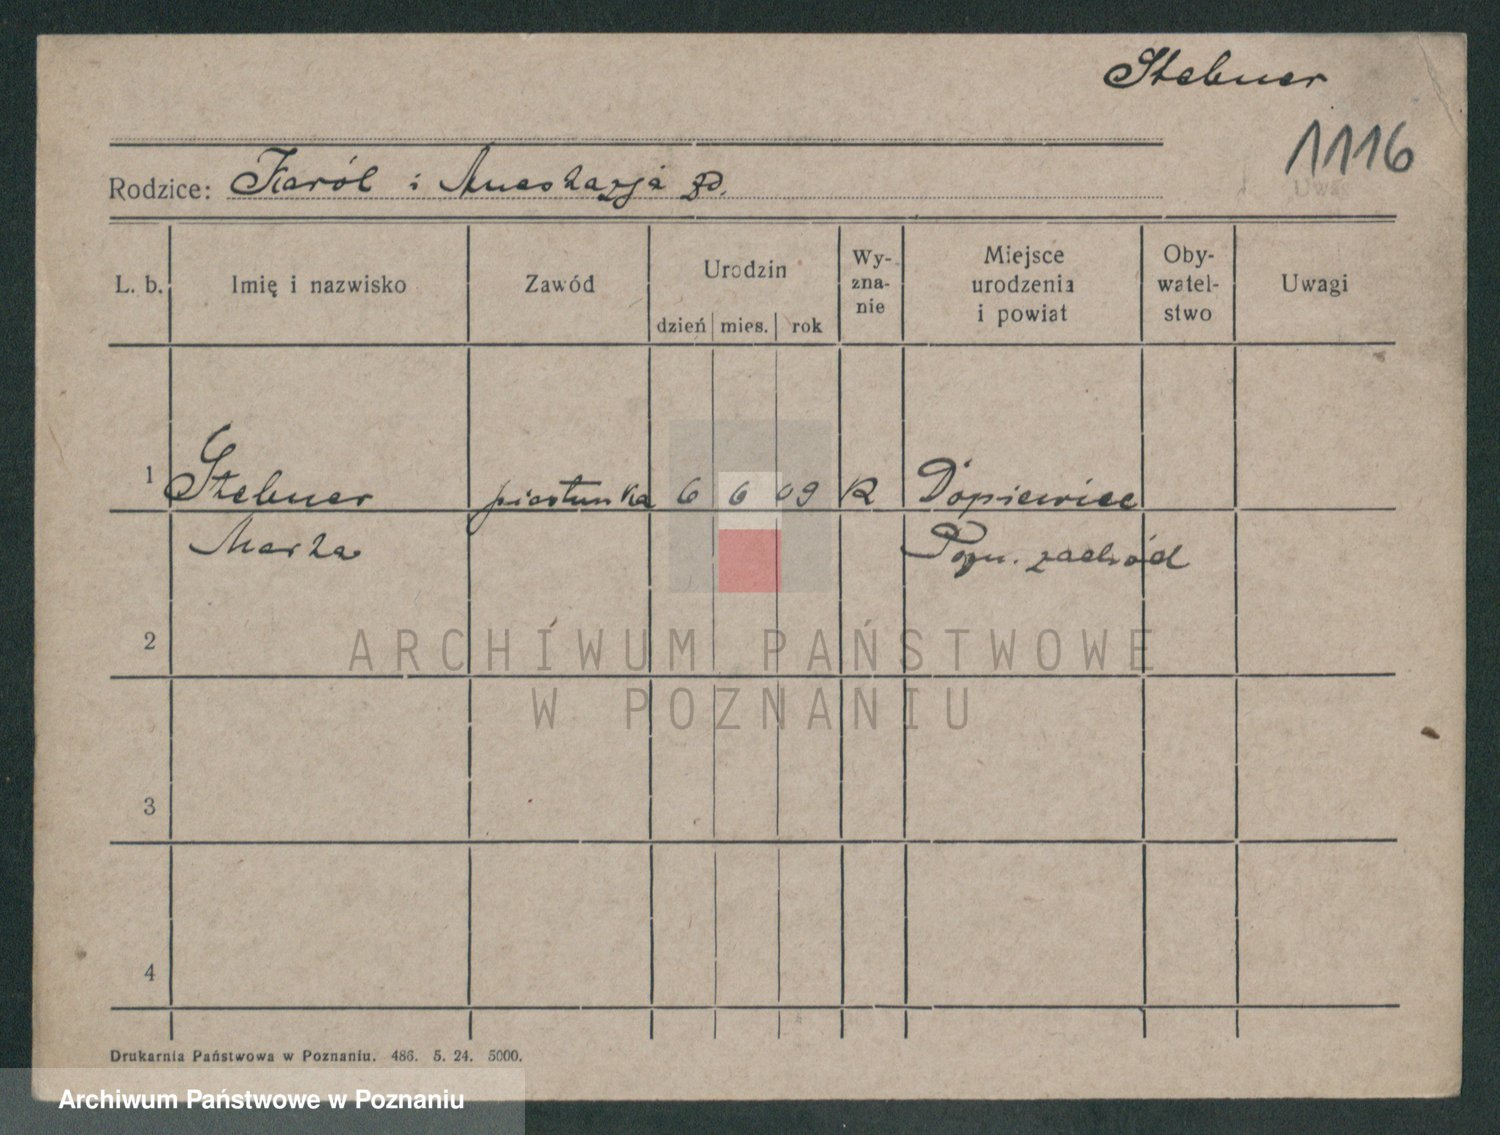 Stebner
1116
Rodzice: Karól i Anastazja
L. b. Imię i nazwisko Zawód Urodzin Wy-zna-nie Miejsce urodzenia i powiat Oby-watel-stwo Uwagi
dzień mies. rok
1 Stebner piastunka 6 6 09 K Dopiewiec
Marta Pozn. zachód
2
ARCHIWUM PAŃSTWOWE
W POZNANIU
3
4
Drukarnia Państwowa w Poznaniu. 486. 5. 24. 5000.
Archiwum Państwowe w Poznaniu